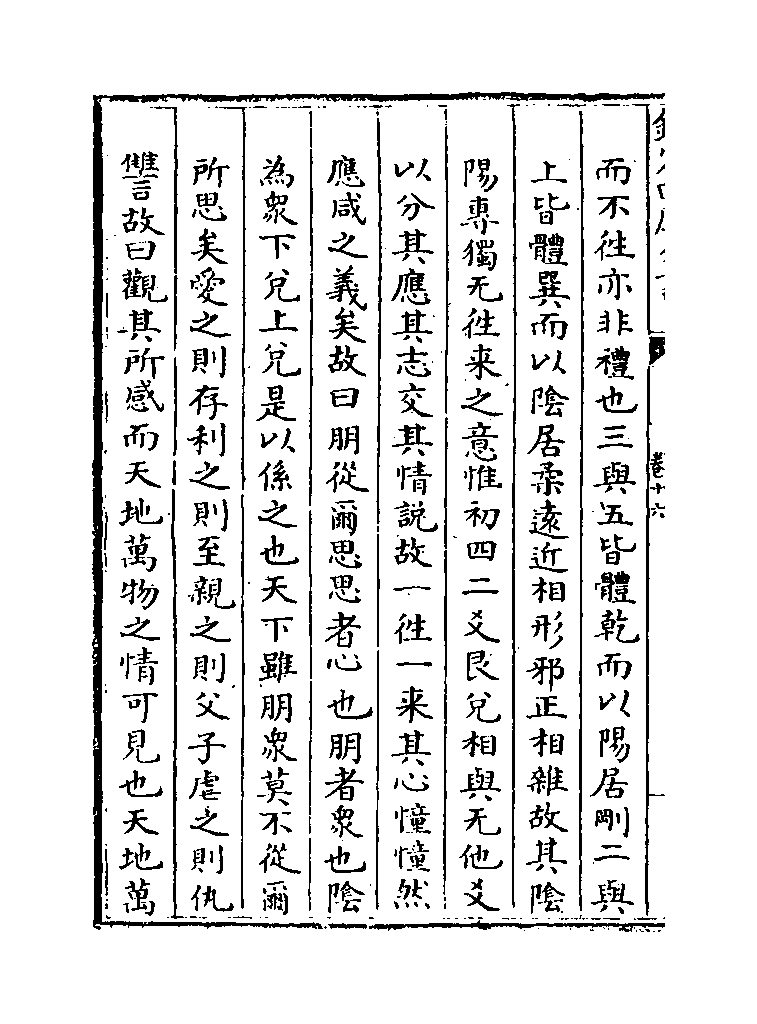 卷十六
而不徃亦非禮也三與五皆體乾而以陽居剛二與
上皆體巽而以陰居柔遠近相形邪正相雜故其陰
陽專獨无徃来之意惟初四二爻艮兌相與无他爻
以分其應其志交其情説故一徃一来其心憧憧然
應咸之義矣故曰朋從爾思思者心也朋者衆也陰
為衆下兌上兌是以係之也天下雖朋衆莫不從爾
所思矣愛之則存利之則至親之則父子虐之則仇
讐故曰觀其所感而天地萬物之情可見也天地萬